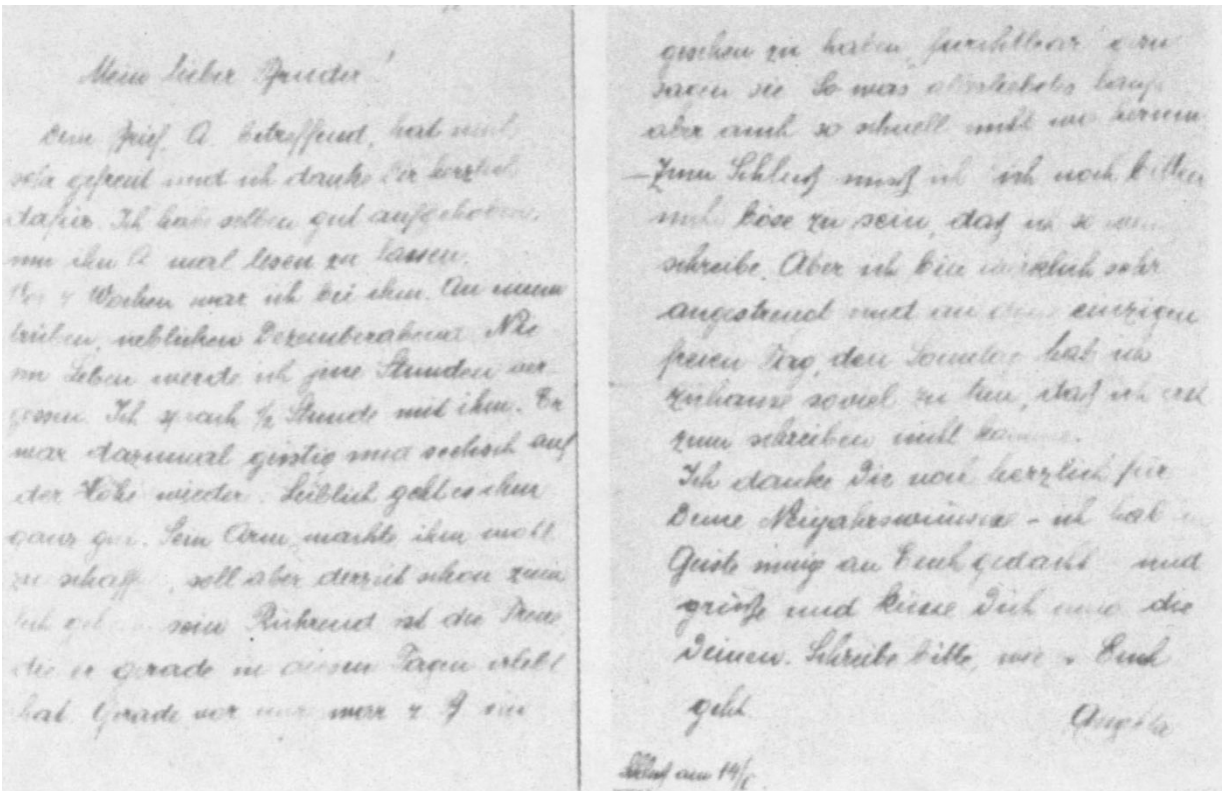 Mein lieber Bruder!
Dein Brief, A. betreffend, hat mich
sehr gefreut und ich danke Dir herzlich
dafür. Ich habe selben gut aufgehoben,
um ihn A mal lesen zu lassen.
Vor 4 Wochen war ich bei ihm. An einem
trüben, neblichen Dezemberabend. Nie
im Leben werde ich jene Stunden ver-
gessen. Ich sprach 1/2 Stunde mit ihm. Er
war dazumal geistig und seelisch auf
der Höhe wieder. Leiblich geht es ihm
ganz gut. Sein Arm machte ihm wohl
zu schaffen, soll aber derzeit schon zum
sein. Rührend ist die Treue,
die er gerade in diesen Tagen erlebt
hat. Gerade vor
gesehen zu haben, furchtbar gern
sagen sie. So was läuft
aber auch so schnell nicht wo herum
– Zum Schluß muß ich Dich noch bitten
nicht böse zu sein, daß ich so wenig
schreibe. Aber ich bin wirklich sehr
angestrengt und an dem einzigen
freien Tag, den Sonntag hab ich
zuhause soviel zu tun, daß ich erst
zum schreiben nicht komme.
Ich danke Dir noch herzlich für
Deine Neujahrswünsche – ich hab im
Geiste innig an Euch gedacht und
grüße und küsse Dich und die
Deinen. Schreibe bitte, wie es Euch
geht.
Angela
am 14/